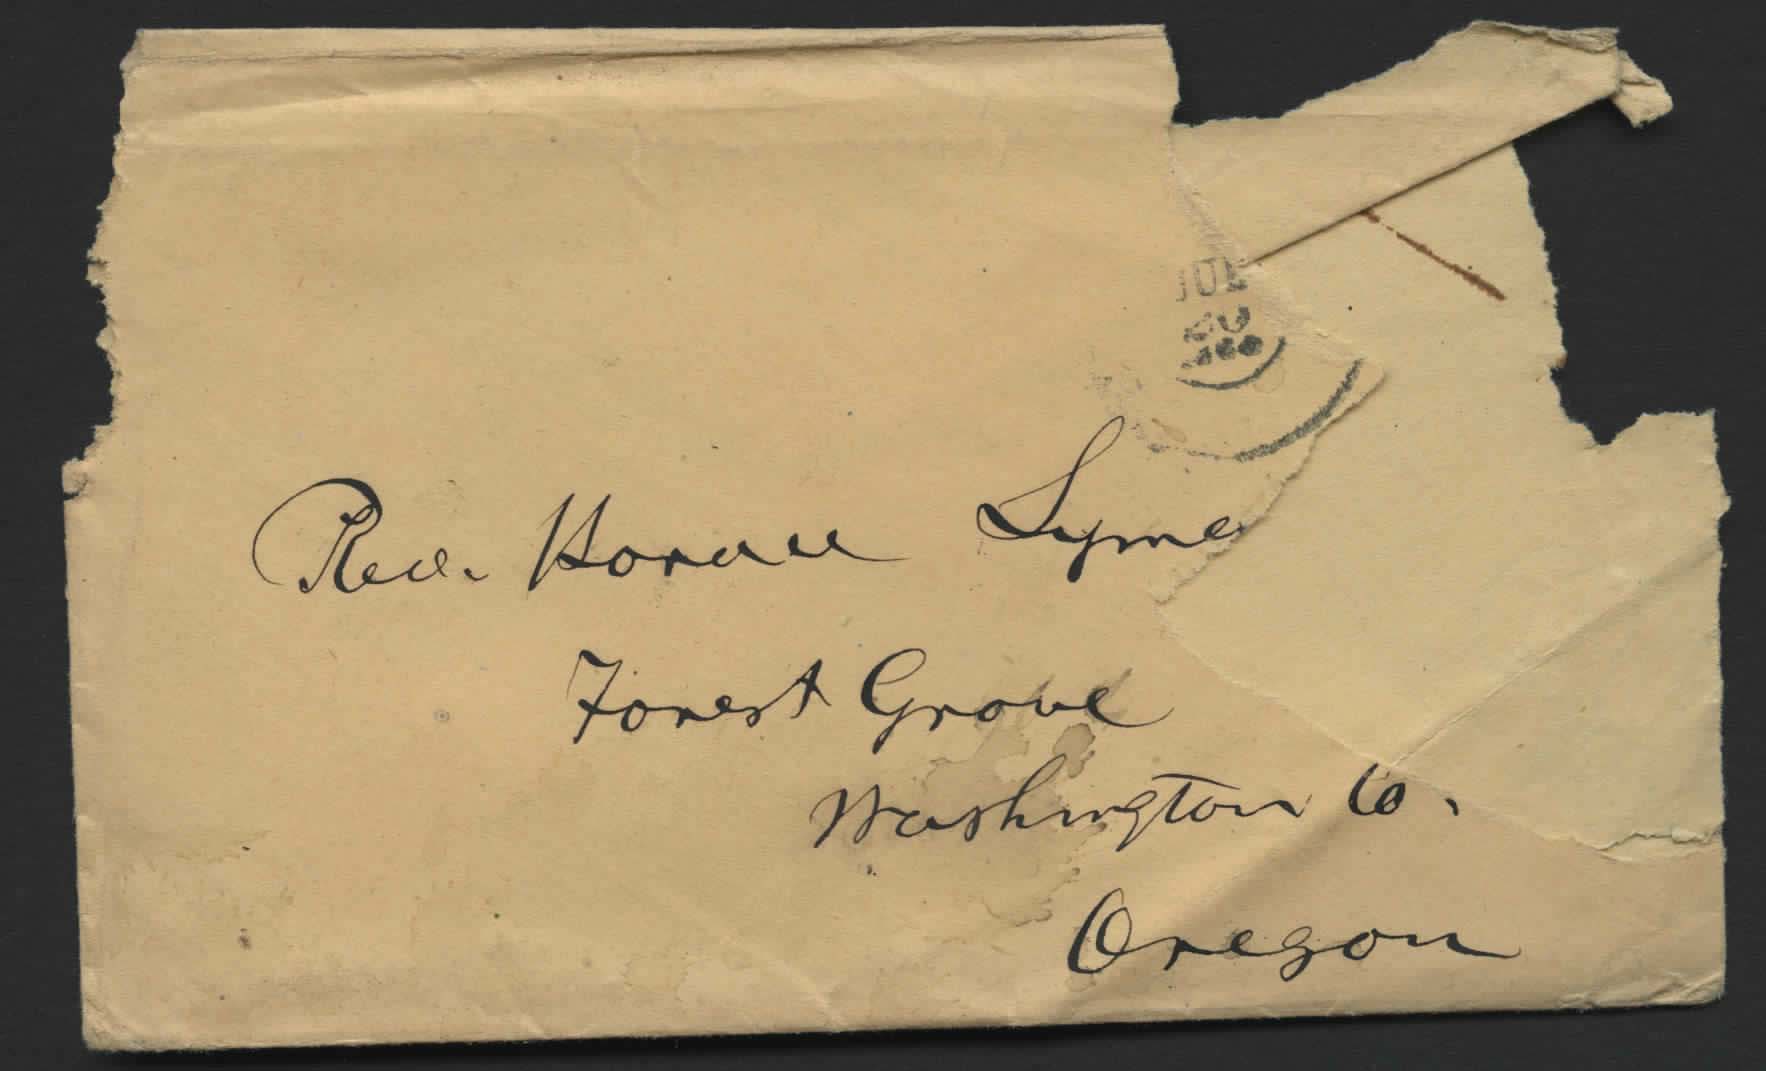 JUL
20
Rev. Horace Lyman
Forest Grove
Washington Co.
Oregon